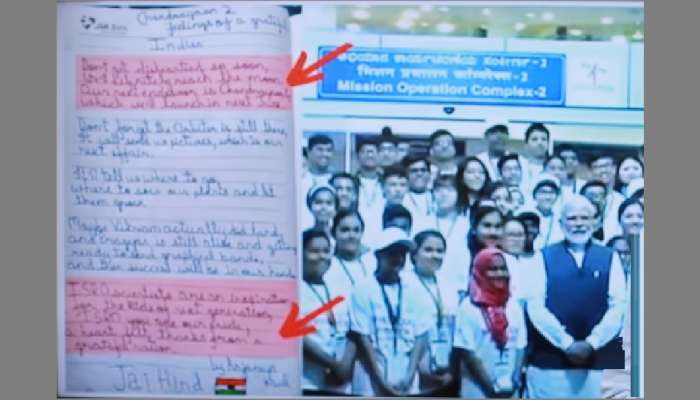 Chandrayaan 2
feelings of a grateful
Indian
Don't get disheartened so soon,
definitely reach the moon
Our next endeavour is Chandrayaan
which we'll launch in next
Don't forget the Orbiter is still there,
It will send us pictures, which is our
next affair.
It'll tell us where to go,
where to sow our plants and let
them grow
Maybe Vikram actually did land,
and Pragyan is still alive and getting
ready to send graphical bands,
and then success will be in our hands
ISRO scientists are an inspiration
for the kids of next generation,
ISRO, you are our pride,
a heart felt thanks from a
grateful nation
by
Jai Hind
मिशन प्रचालन कॉम्प्लेक्स-2
Mission Operation Complex-2